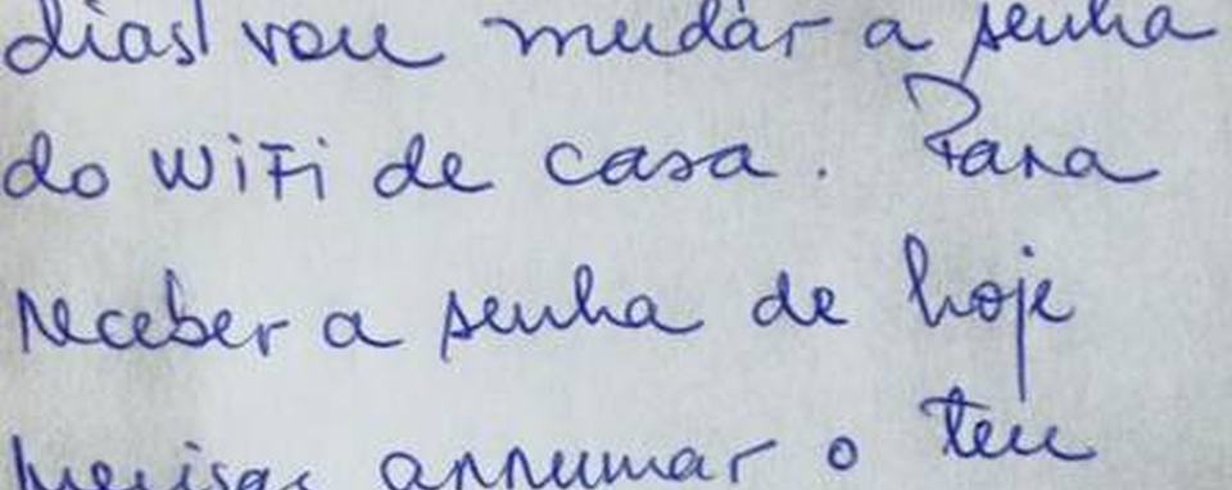 dias vou mudar a senha
do WiFi de casa. Para
receber a senha de hoje
arrumar o teu